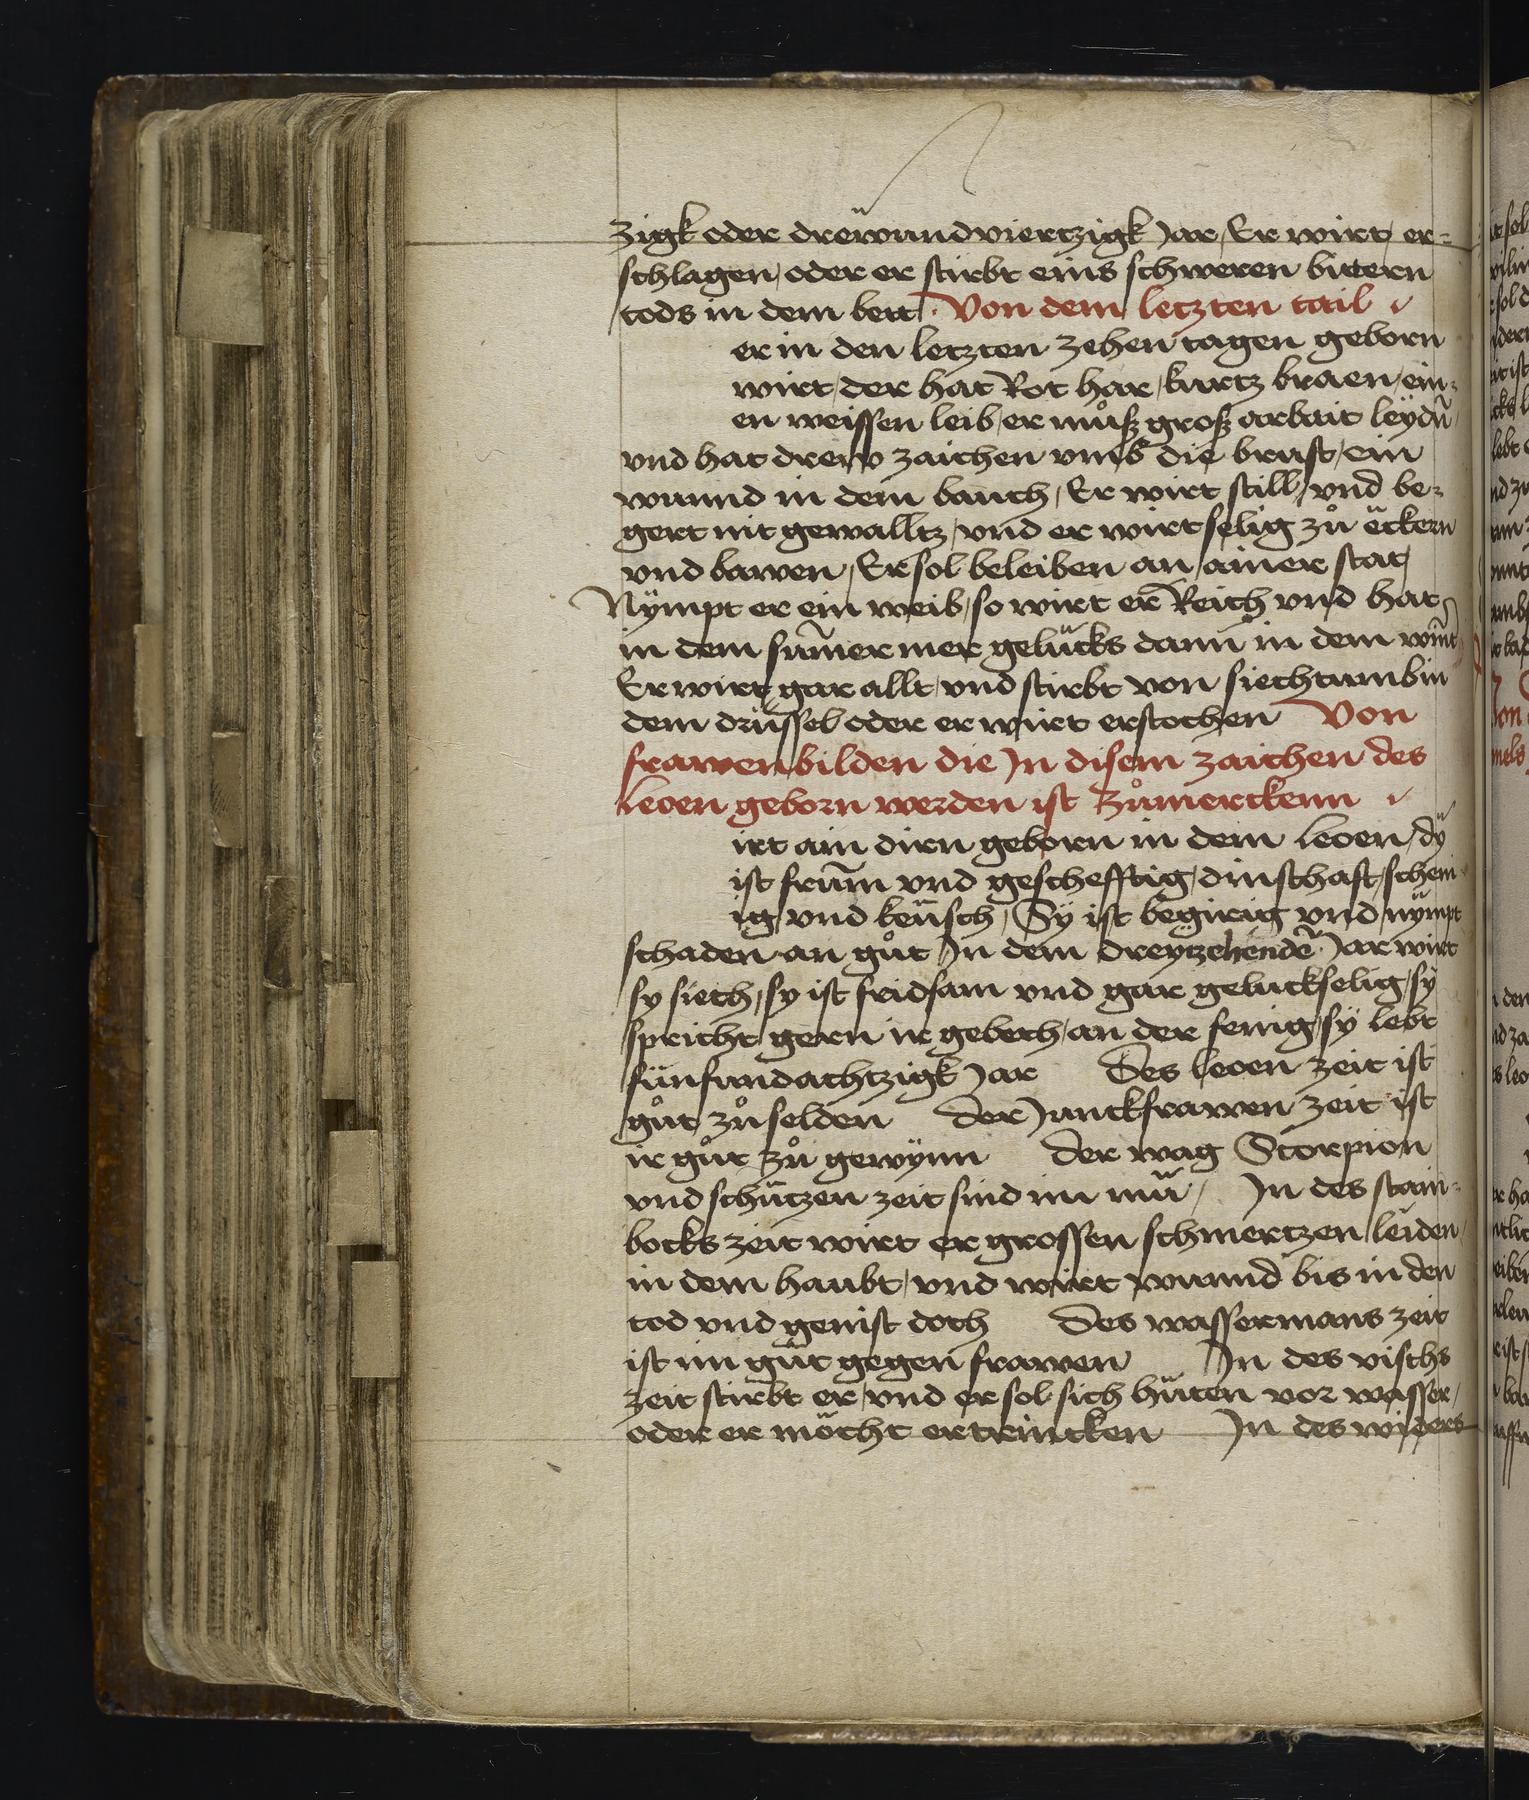 zigk oder drewundviertzigk Jar / Er wirt er-
schlagen / oder er stirbt eins schweren bittern
tods in dem bett · Von dem letzten tail
er in den letzten zehen tagen geborn
wirt / der hat Rot har / kurtz braen / ein-
en weissen leib / er můsz grosz arbait leÿdn̄
vnd hat drew zaichen vmb die brust / ein
wunnd in dem bauch / Er wirt still / vnd be-
gert nit gewalltz / vnd er wirt selig zů äckern
vnd bawen / Er sol beleiben an ainer stat /
Nÿmpt er ein weib / so wirt er Reich vnd hat
in dem sum̄er mer gelücks dann in dem wint
Er wirt gar allt / vnd stirbt von siechtumb in
dem drüssel oder er wirt erstochen Von
frawenbilden die Jn disem zaichen des
leoen geborn werden ist Zůmerckenn
irt ain dirn geborn in dem leoen / dÿ
ist frum̄ vnd geschefftig / dinsthaft / schem
ig vnd keüsch / Sÿ ist begirig vnd nÿmpt
schaden an gůt Jn dem dreytzehendē Jar wirt
sy siech / sy ist fridsam vnd gar geluckselig / sÿ
spricht gern ir gebeth / an der fenig / sÿ lebt
fünfundachtzigk Jar Des leoen zeit ist
gůt zů selden der Junckfrawen zeit ist
ir gůt zů gewÿnn der wag Scorpion
vnd schützen zeit sind im mü / Jn des stain-
bocks zeit wirt er grossen schmertzen leiden
in dem haubt / vnd wirt wunnd bis in den
tod vnd genist doch Des wassermans zeit
ist im gůt gegen frawen Jn des vischs
zeit stirbt er / vnd er sol sich hüten vor wasser /
oder er möcht ertrincken Jn des widers